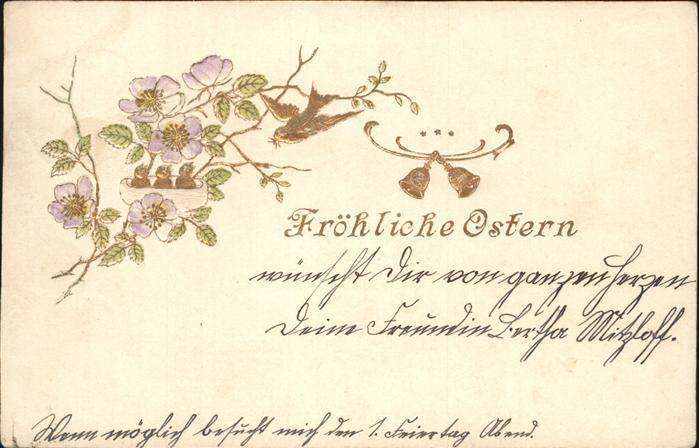 Fröhliche Ostern
wünscht Dir von ganzen Herzen
Deine Freundin Bertha Mitzloff.
Wenn möglich besucht mich den 1. Feiertag Abend.